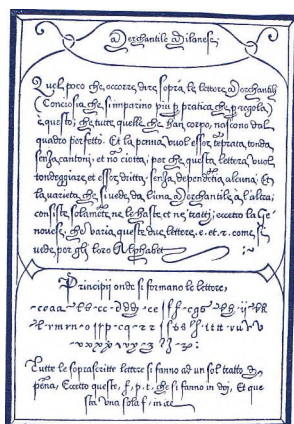 Merchantile Milanese.
Quel poco che, occorre, dire sopra, le lettere, Merchantili
(Conciosia, che si imparino piu p̱ pratica che p̱ regola)
è questo; che, tutte, quelle, che han corpo, nascono dal
quadro perfetto. Et la penna vuol esser, tẽprata, tonda
senza cantoni, et nõ ciotta; per che, questa lettera vuol
tondeggiare, et esser, dritta, senza, dependẽtia, alcuna; Et
la varieta, che, si vede, da luna Merchantile à l'altra;
consiste, solamẽte, ne, le haste, et ne, tratti; eccetto la Ge
novese, che varia queste, due, lettere, e. et. r. come, si
vede, per gli loro Alphabet
Principij onde si formano le lettere,
Tutte, le soprascritte, lettere, si fanno ad un sol tratto di
pẽna, Eccetto queste, f, p, t, che, si fanno in doj, Et que
sta una sola f, in ae